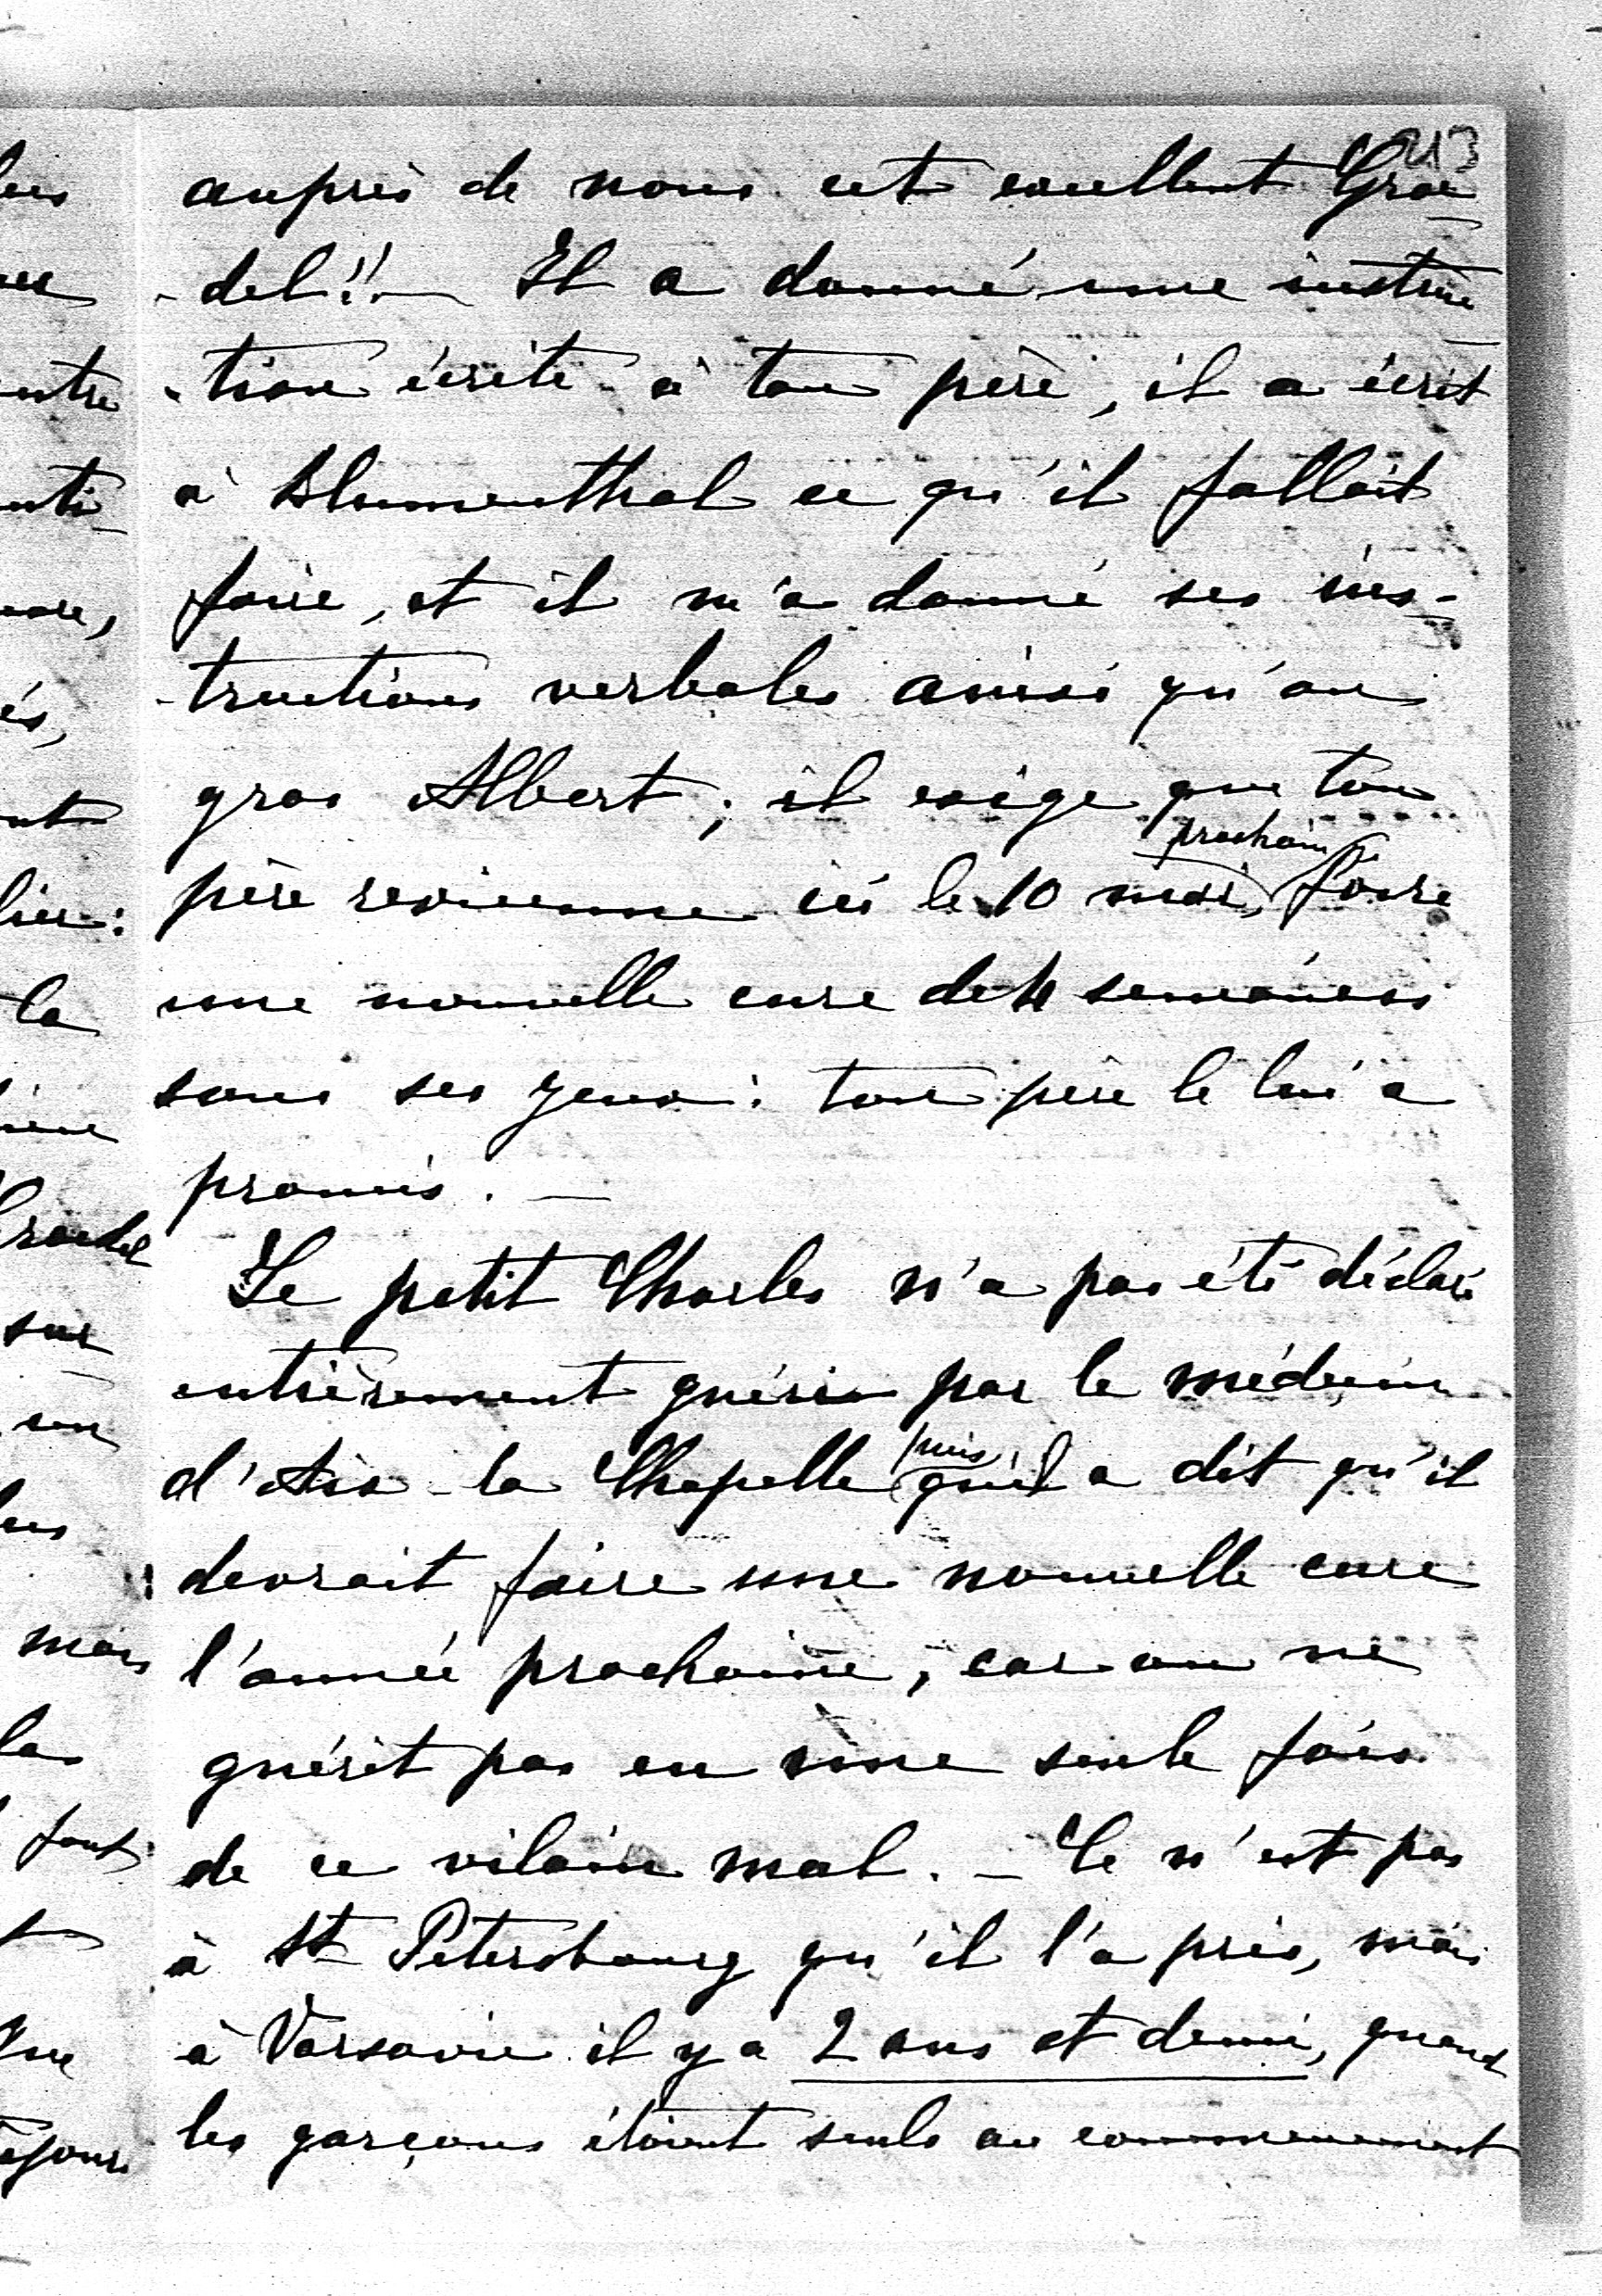 213
auprès de nous cet excellent Groe
-del!! — Il a donné une instruc
-tion écrite à ton père, il a écrit
à Blumenthal ce qu'il fallait
faire, et il m'a donné ses ins-
-tructions verbales ainsi qu'au
gros Albert; il exige que ton
prochain
père revienne ici le 10 mai, faire
une nouvelle cure de 4 semaines
sous ses yeux: ton père le lui a
promis. —
Le petit Charles n'a pas été déclaré
entièrement guéri par le médecin
d'Aix-la Chapelle puisqu'il a dit qu'il
devrait faire une nouvelle cure
l'année prochaine, car on ne
guérit pas en une seule fois
de ce vilain mal. — Ce n'est pas
à St Pétersbourg qu'il l'a pris, mais
à Varsovie il y a 2 ans et demi, quand
les garçons étaient seuls au commencement